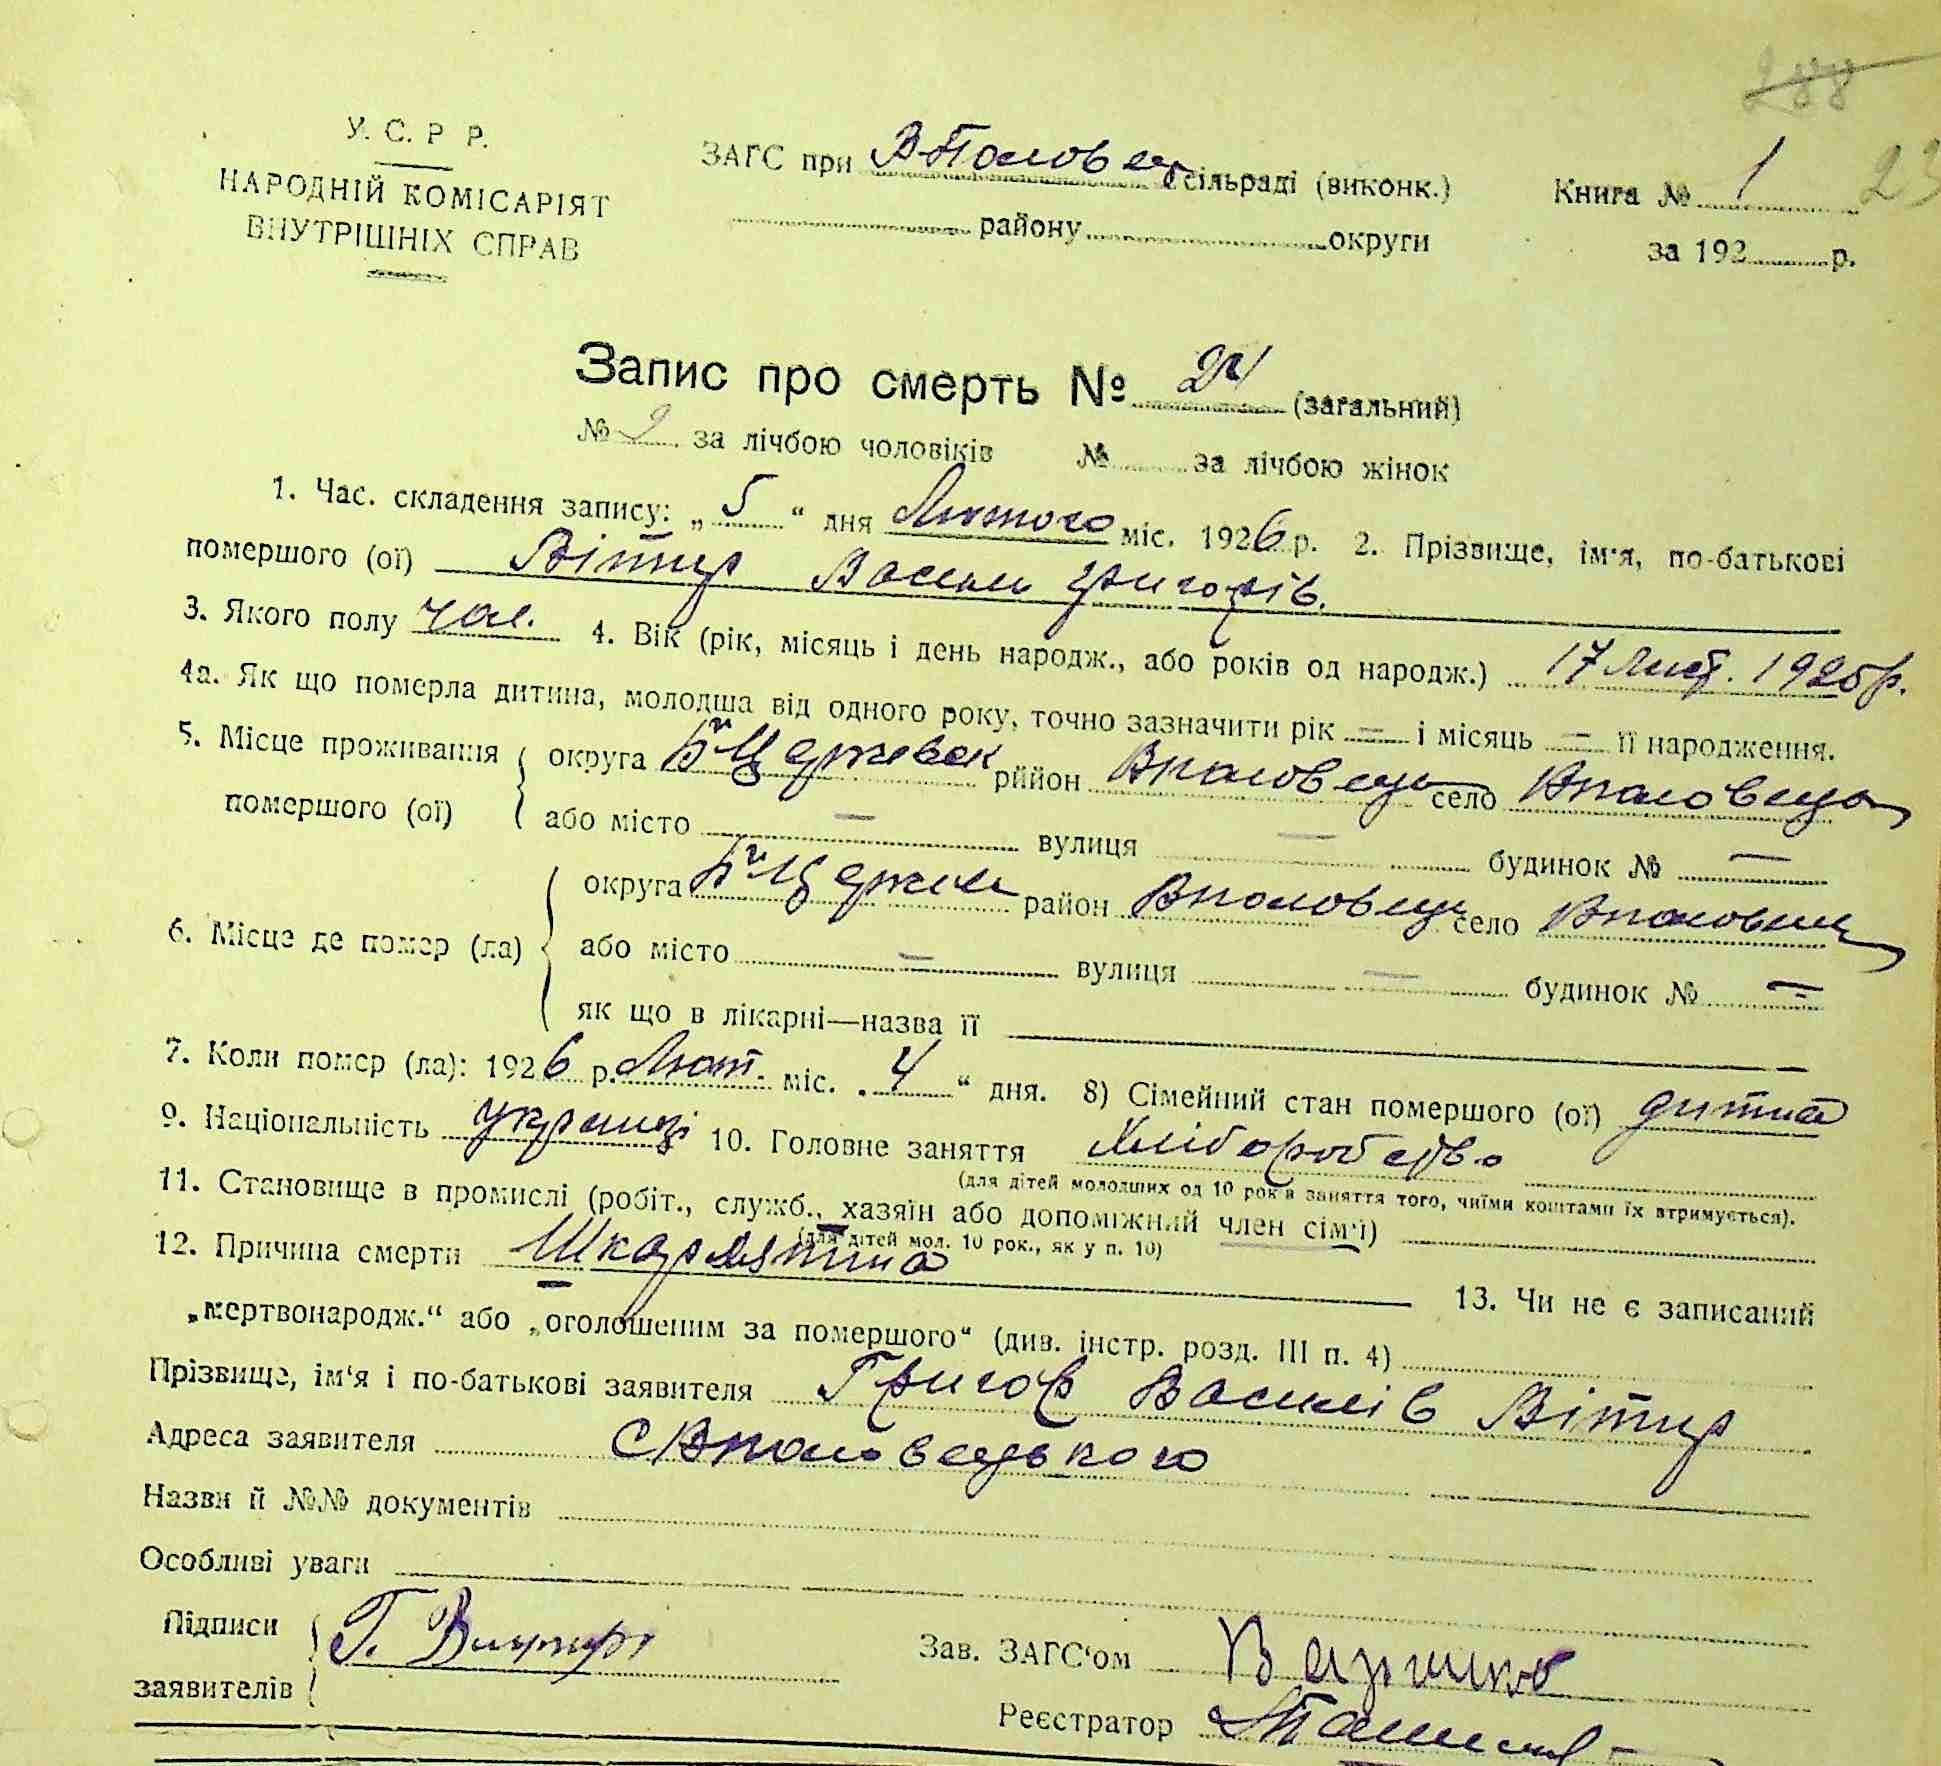 288
У. С. Р Р.
НАРОДНІЙ КОМІСАРІЯТ
ВНУТРІШНІХ СПРАВ
ЗАГС при В-Половец сільраді (виконк.)
району округи
Книга № 1 23
за 192 р.
Запис про смерть № 24 (загальний)
№ 2 за лічбою чоловіків № за лічбою жінок
1. Час. складення запису: „ 5 “ дня Лютого міс. 1926 р. 2. Прізвище, ім'я, по-батькові
помершого (ої) Вітир Василь Григорів.
3. Якого полу чол. 4. Вік (рік, місяць і день народж., або років од народж.) 17 Лист. 1925 р.
4а. Як що померла дитина, молодша від одного року, точно зазначити рік — і місяць — її народження.
5. Місце проживання округа Б-Церквск рййон Вполовец село Вполовецьк
помершого (ої) або місто — вулиця — будинок № —
округа Б-Церкв район Вполовец село Вполовец
6. Місце де помер (ла) або місто — вулиця — будинок № —
як що в лікарні—назва її
7. Коли помер (ла): 1926 р. Лют. міс. „ 4 “ дня. 8) Сімейний стан помершого (ої) дитина
9. Національність україні 10. Головне заняття Хліборобство
(для дітей молодших од 10 років заняття того, чиїми коштами їх втримується).
11. Становище в промислі (робіт., служб., хазяїн або допоміжний член сім'ї)
(для дітей мол. 10 рок., як у п. 10)
12. Причина смерти Шкарлятина 13. Чи не є записаний
„мертвонародж.“ або „оголошеним за помершого“ (див. інстр. розд. III п. 4)
Прізвище, ім'я і по-батькові заявителя Григор Василів Вітир
Адреса заявителя с Вполовецького
Назви й №№ документів
Особливі уваги
Підписи Г. Витир Зав. ЗАГС'ом
заявителів
Реєстратор